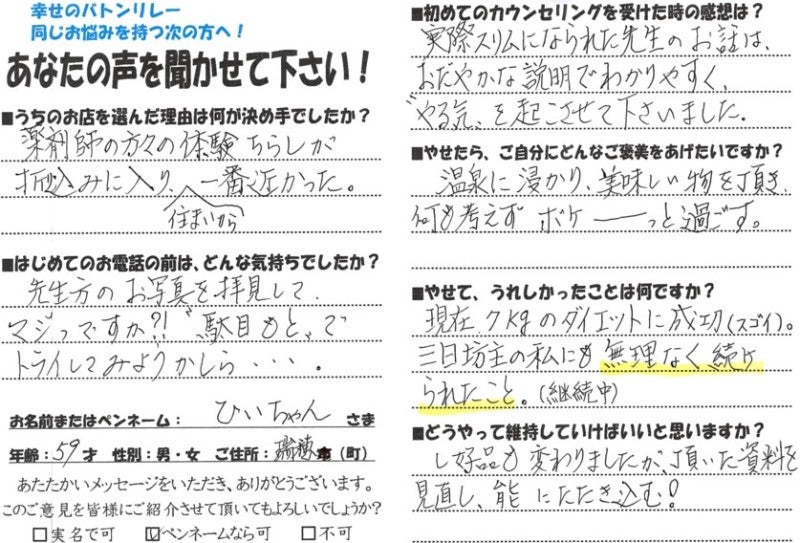 幸せのバトンリレー
同じお悩みを持つ次の方へ!
あなたの声を聞かせて下さい!
■うちのお店を選んだ理由は何が決め手でしたか?
薬剤師の方々の体験ちらしが
折込みに入り、一番近かった。
住まいから
■はじめてのお電話の前は、どんな気持ちでしたか?
先生方のお写真を拝見して、
マジっですか?!〝駄目もと〟で
トライしてみようかしら・・・。
お名前またはペンネーム: ひいちゃん さま
年齢:59才 性別:男・女 ご住所:瑞穂市(町)
あたたかいメッセージをいただき、ありがとうございます。
このご意見を皆様にご紹介させて頂いてもよろしいでしょうか?
□実名で可 ☑ペンネームなら可 □不可
■初めてのカウンセリングを受けた時の感想は?
実際スリムになられた先生のお話は、
おだやかな説明でわかりやすく、
〝やる気〟を起こさせて下さいました。
■やせたら、ご自分にどんなご褒美をあげたいですか?
温泉に浸かり、美味しい物を頂き、
何も考えず ボケ――っと過ごす。
■やせて、うれしかったことは何ですか?
現在、7kgのダイエットに成功(スゴイ)。
三日坊主の私にも無理なく続け
られたこと。(継続中)
■どうやって維持していけばいいと思いますか?
し好品も変わりましたが、頂いた資料を
見直し、能にたたき込む!